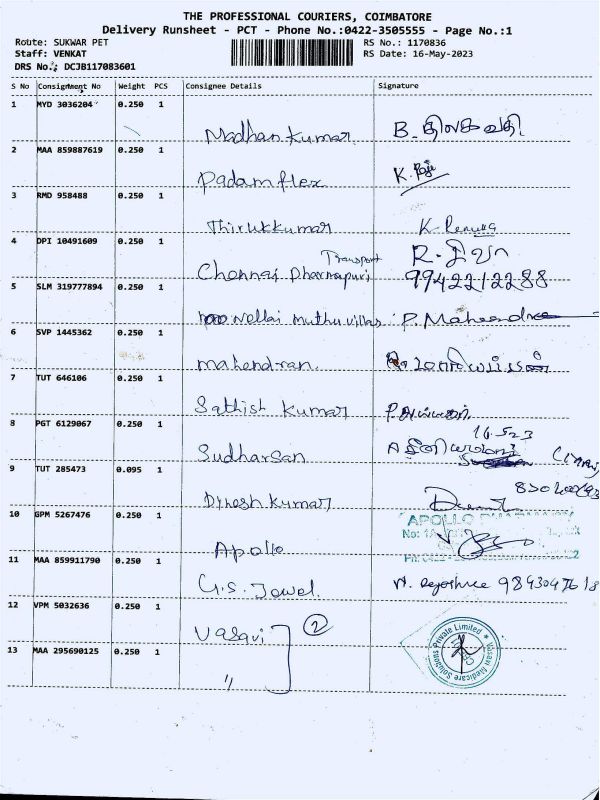 THE PROFESSIONAL COURIERS, COIMBATORE
Delivery Runsheet - PCT - Phone No.:0422-3505555 - Page No.:1
Route: SUKWAR PET RS No.: 1170836
Staff: VENKAT RS Date: 16-May-2023
DRS No.: DCJB117083601
S No Consignment No Weight PCS Consignee Details Signature
1 MYD 3036204 0.250 1
Madhan Kumar B. திலகவதி
2 MAA 859887619 0.250 1
Padam flex K. Raji
3 RMD 958488 0.250 1
Thirukkumar K Renuka
4 DPI 10491609 0.250 1
Transport
Chennai Dharmapuri 9942212288
5 SLM 319777894 0.250 1
Nellai muthu villas P. Mahendra
6 SVP 1445362 0.250 1
mahendran.
7 TUT 646106 0.250 1
Sathish Kumar
8 PGT 6129067 0.250 1
16.5.23
Sudharsan
9 TUT 285473 0.095 1
Dinesh Kumar
10 GPM 5267476 0.250 1
APOLLO PHARMACY
Apollo
11 MAA 859911790 0.250 1
G.S. Jewel.
12 VPM 5032636 0.250 1
Vasavi 2
Vasavi Medicare Solutions Private Limited
13 MAA 295690125 0.250 1
"